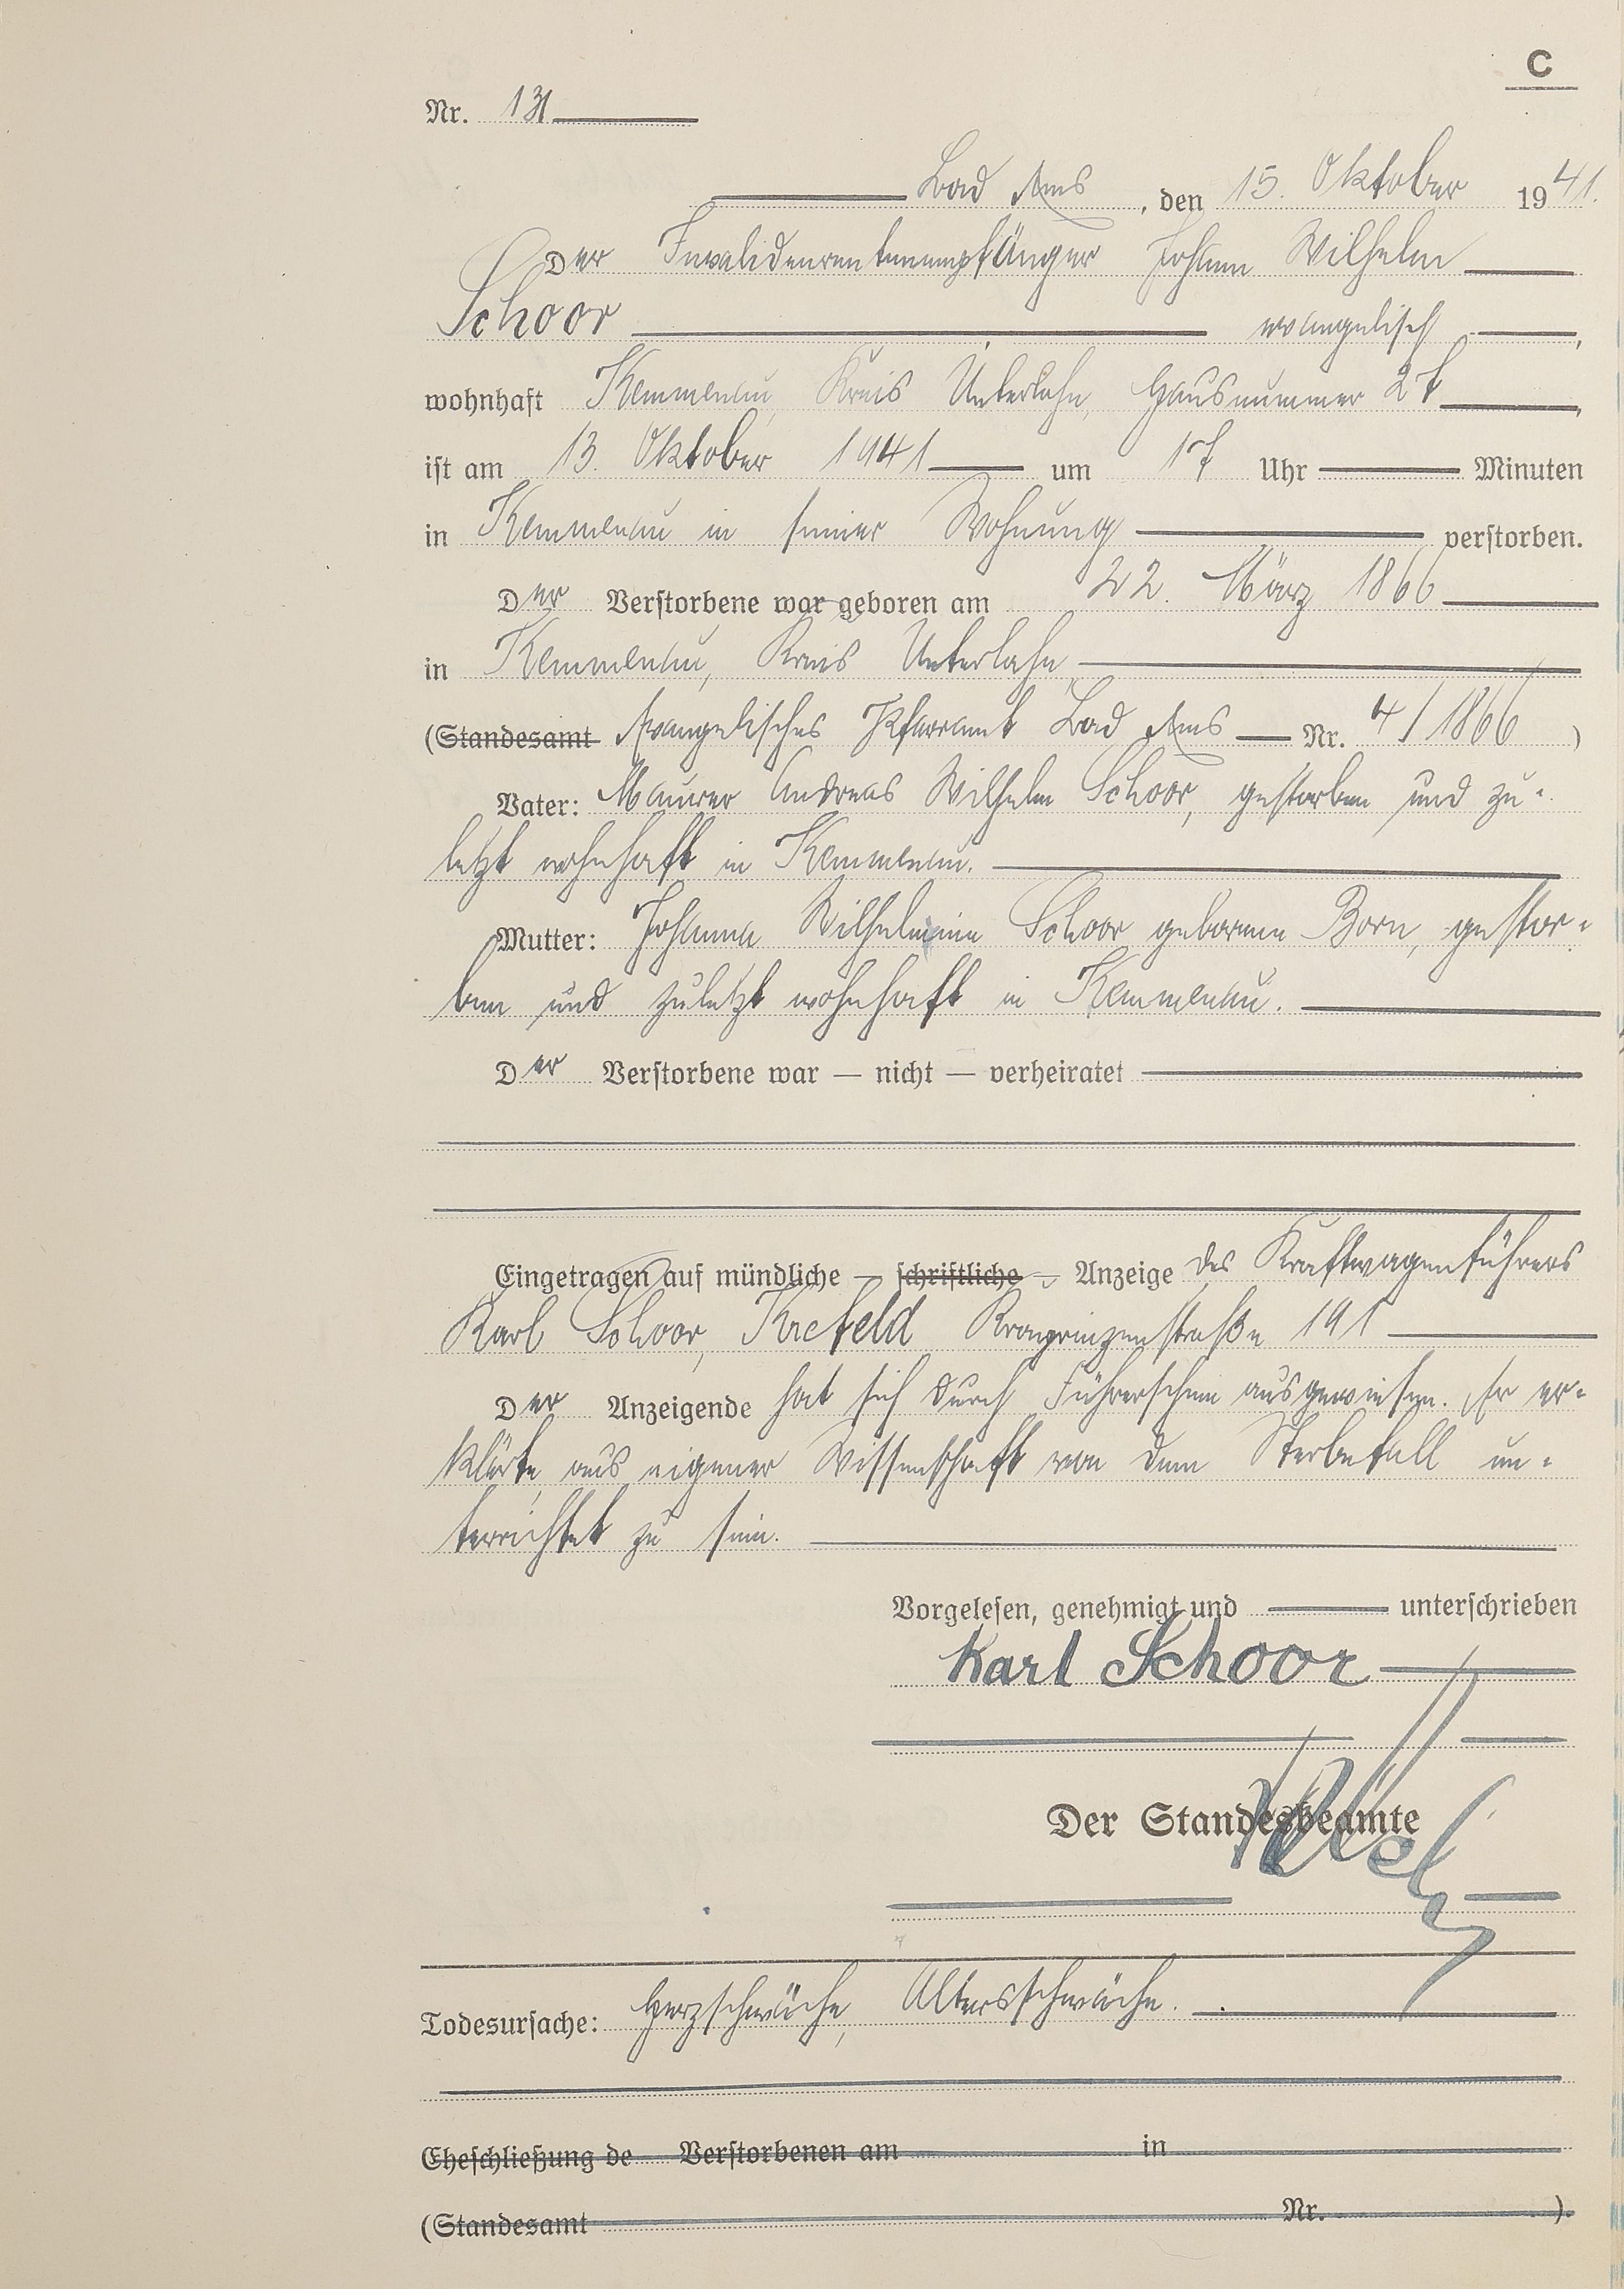 C
Nr. 131
Bad Ems, den 15. Oktober 1941.
Der Invalidenrentenempfänger Johann Wilhelm
Schoor evangelisch,
wohnhaft Kemmenau, Kreis Unterlahn, Hausnummer 27,
ist am 13. Oktober 1941 um 17 Uhr Minuten
in Kemmenau in seiner Wohnung verstorben.
Der Verstorbene war geboren am 22. März 1866
in Kemmenau, Kreis Unterlahn
(Standesamt Evangelisches Pfarramt Bad Ems Nr. 4/1866)
Vater: Maurer Andreas Wilhelm Schoor, gestorben und zu-
letzt wohnhaft in Kemmenau.
Mutter: Johanna Wilhelmine Schoor geborene Born, gestor-
ben und zuletzt wohnhaft in Kemmenau.
Der Verstorbene war — nicht — verheiratet
Eingetragen auf mündliche — schriftliche — Anzeige des Kraftwagenführers
Karl Schoor, Krefeld Kronprinzenstraße 191
Der Anzeigende hat sich durch Führerschein ausgewiesen. Er er-
klärte, aus eigener Wissenschaft von dem Sterbefall un-
terrichtet zu sein.
Vorgelesen, genehmigt und unterschrieben
Karl Schoor
Der Standesbeamte
Todesursache: Herzschwäche, Altersschwäche.
Eheschließung de Verstorbenen am in
(Standesamt Nr. ).